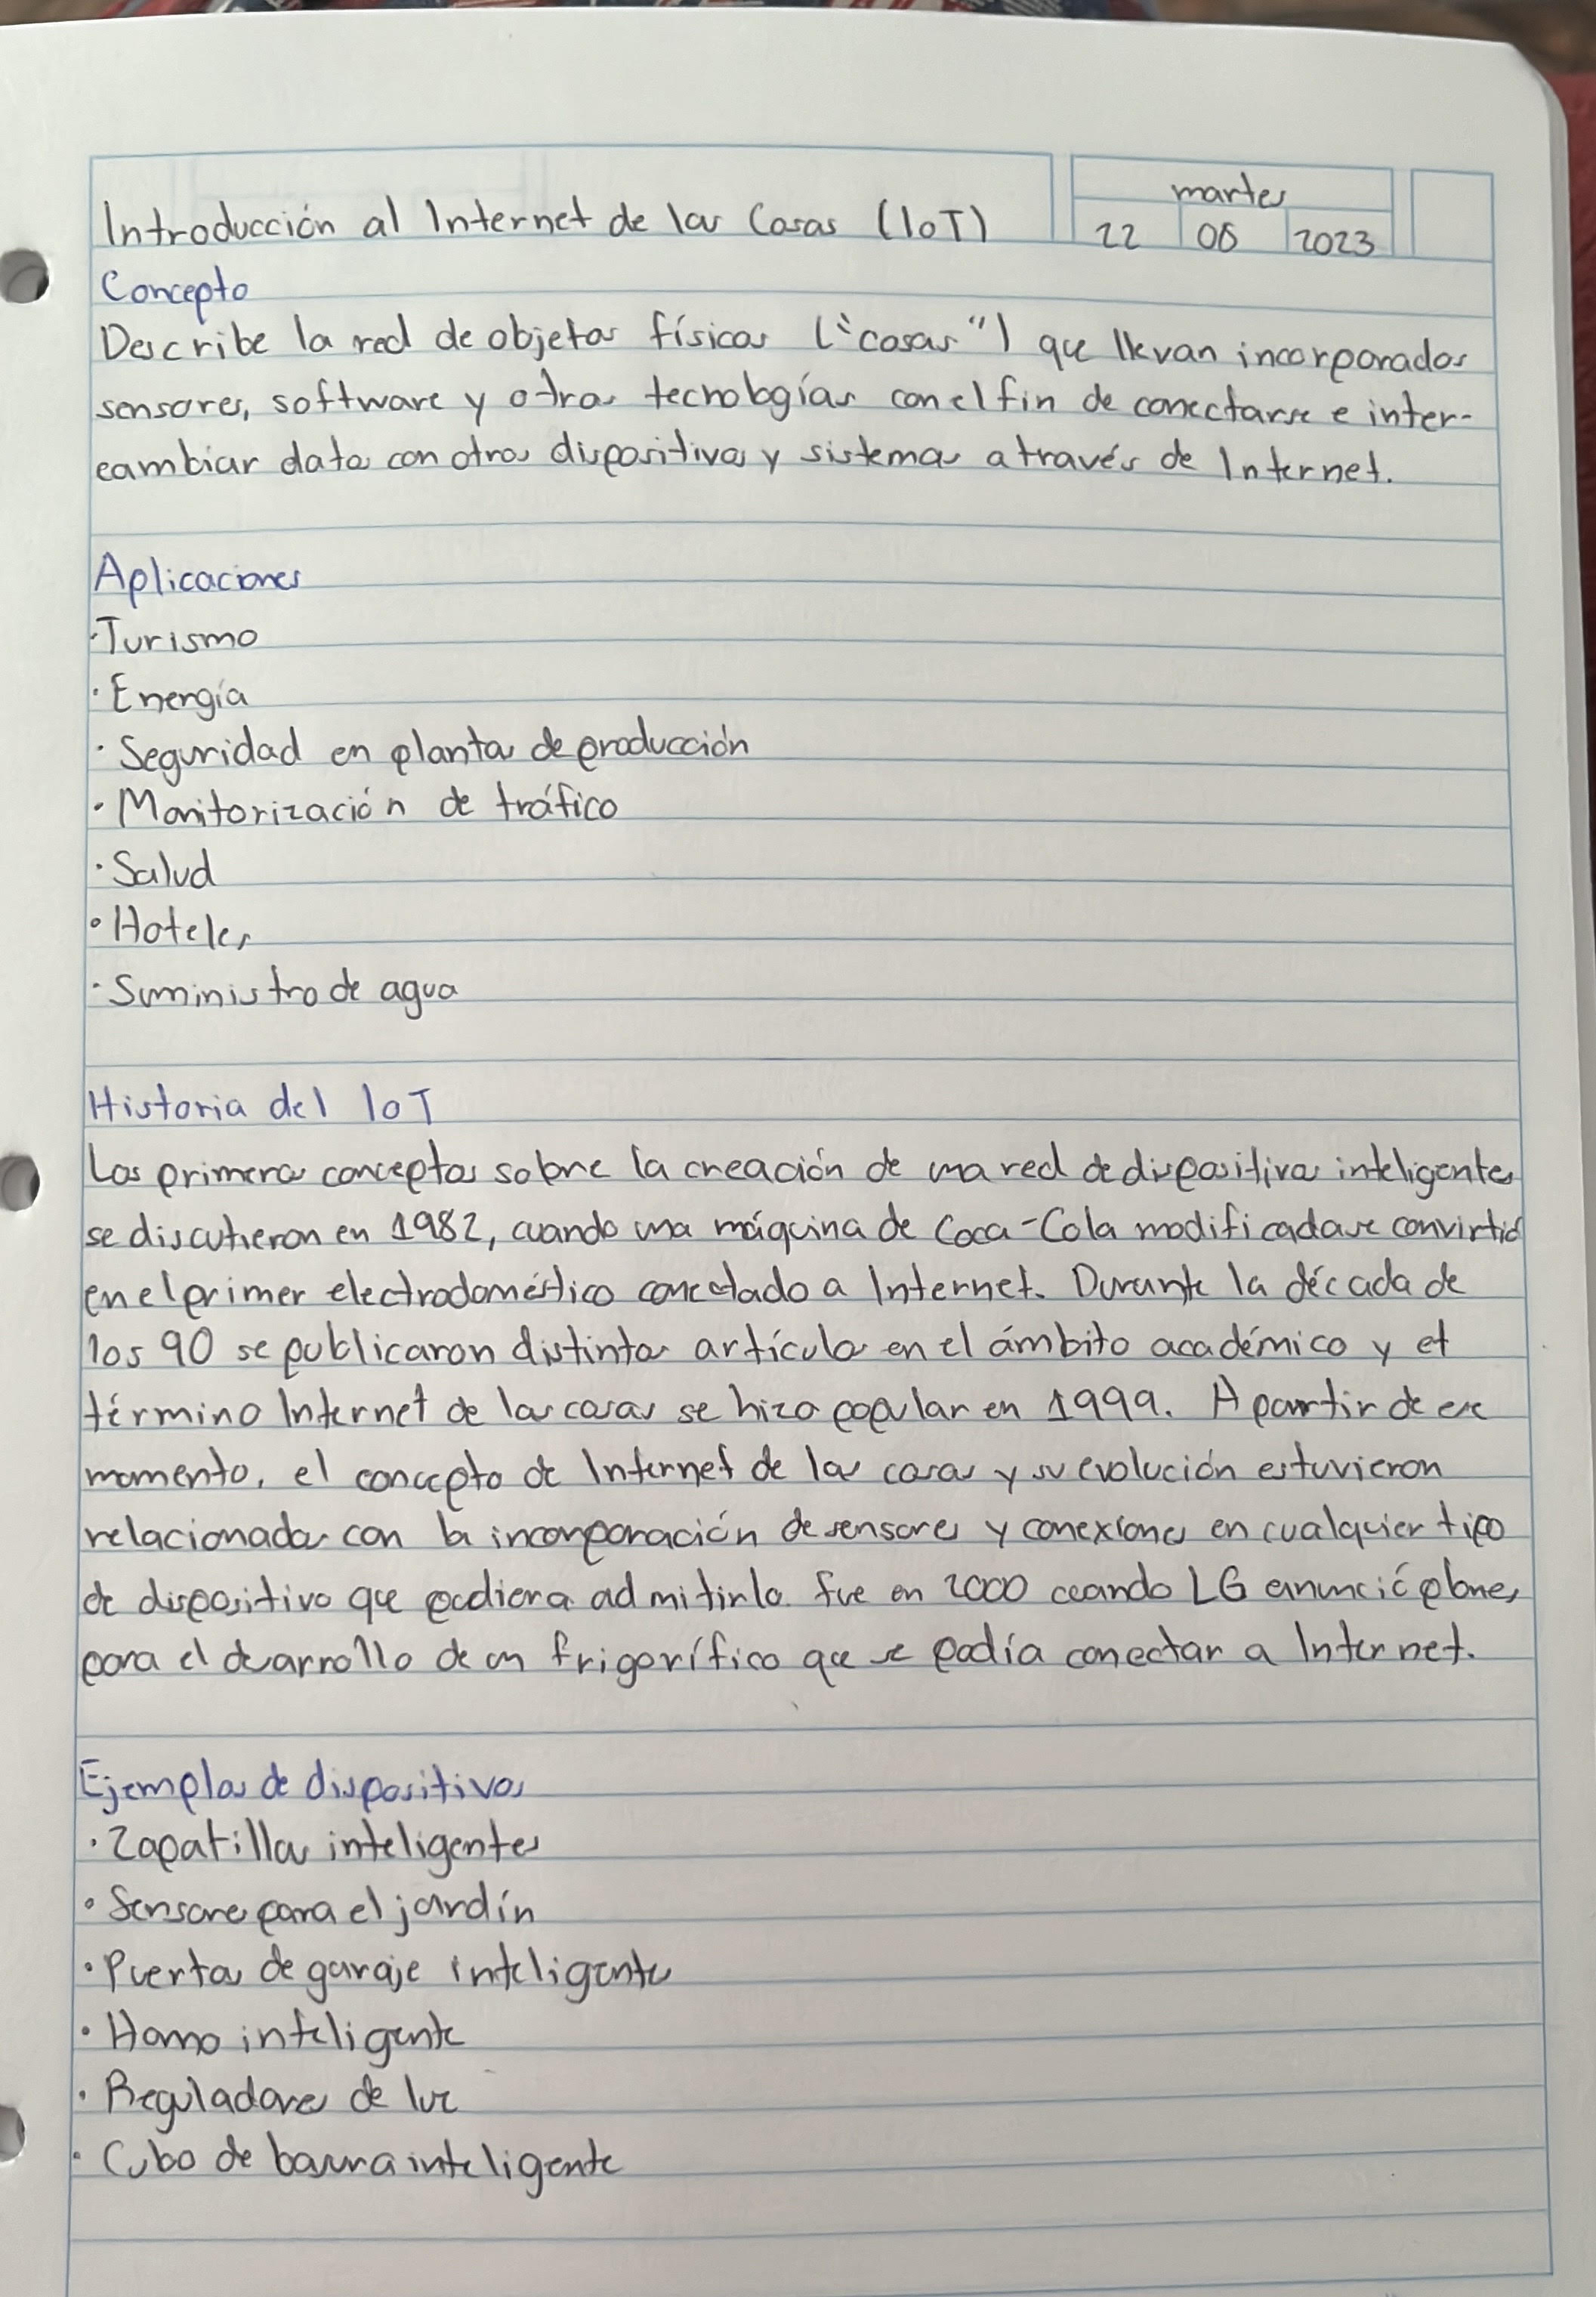 Introducción al Internet de las Cosas (IoT)
martes
22 08 2023
Concepto
Describe la red de objetos físicos ("cosas") que llevan incorporados
sensores, software y otras tecnologías con el fin de conectarse e inter-
cambiar datos con otros dispositivos y sistemas a través de Internet.
Aplicaciones
·Turismo
·Energía
·Seguridad en plantas de producción
·Monitorización de tráfico
·Salud
·Hoteles
·Suministro de agua
Historia del IoT
Los primeros conceptos sobre la creación de una red de dispositivos inteligentes
se discutieron en 1982, cuando una máquina de Coca-Cola modificada se convirtió
en el primer electrodoméstico conectado a Internet. Durante la década de
los 90 se publicaron distintos artículos en el ámbito académico y el
término Internet de las cosas se hizo popular en 1999. A partir de ese
momento, el concepto de Internet de las cosas y su evolución estuvieron
relacionados con la incorporación de sensores y conexiones en cualquier tipo
de dispositivo que pudiera admitirlo. fue en 2000 cuando LG anunció planes
para el desarrollo de un frigorífico que se podía conectar a Internet.
Ejemplos de dispositivos
·Zapatillas inteligentes
·Sensores para el jardín
·Puertas de garaje inteligentes
·Horno inteligente
·Reguladores de luz
·Cubo de basura inteligente